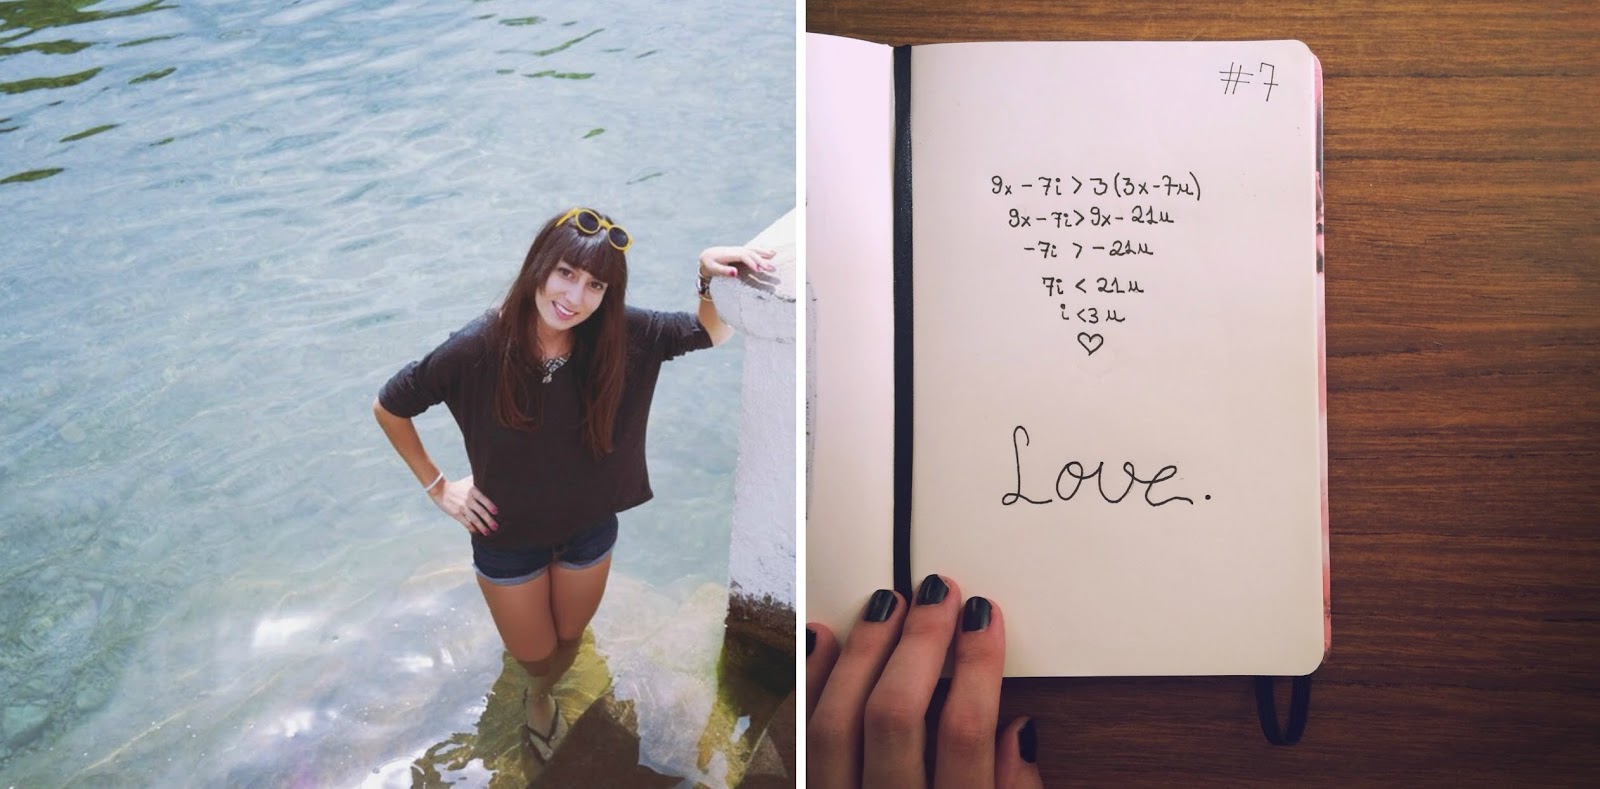 #7
9x - 7i > 3 (3x - 7u)
9x - 7i > 9x - 21u
-7i > -21u
7i < 21u
i <3 u
♡
Love.